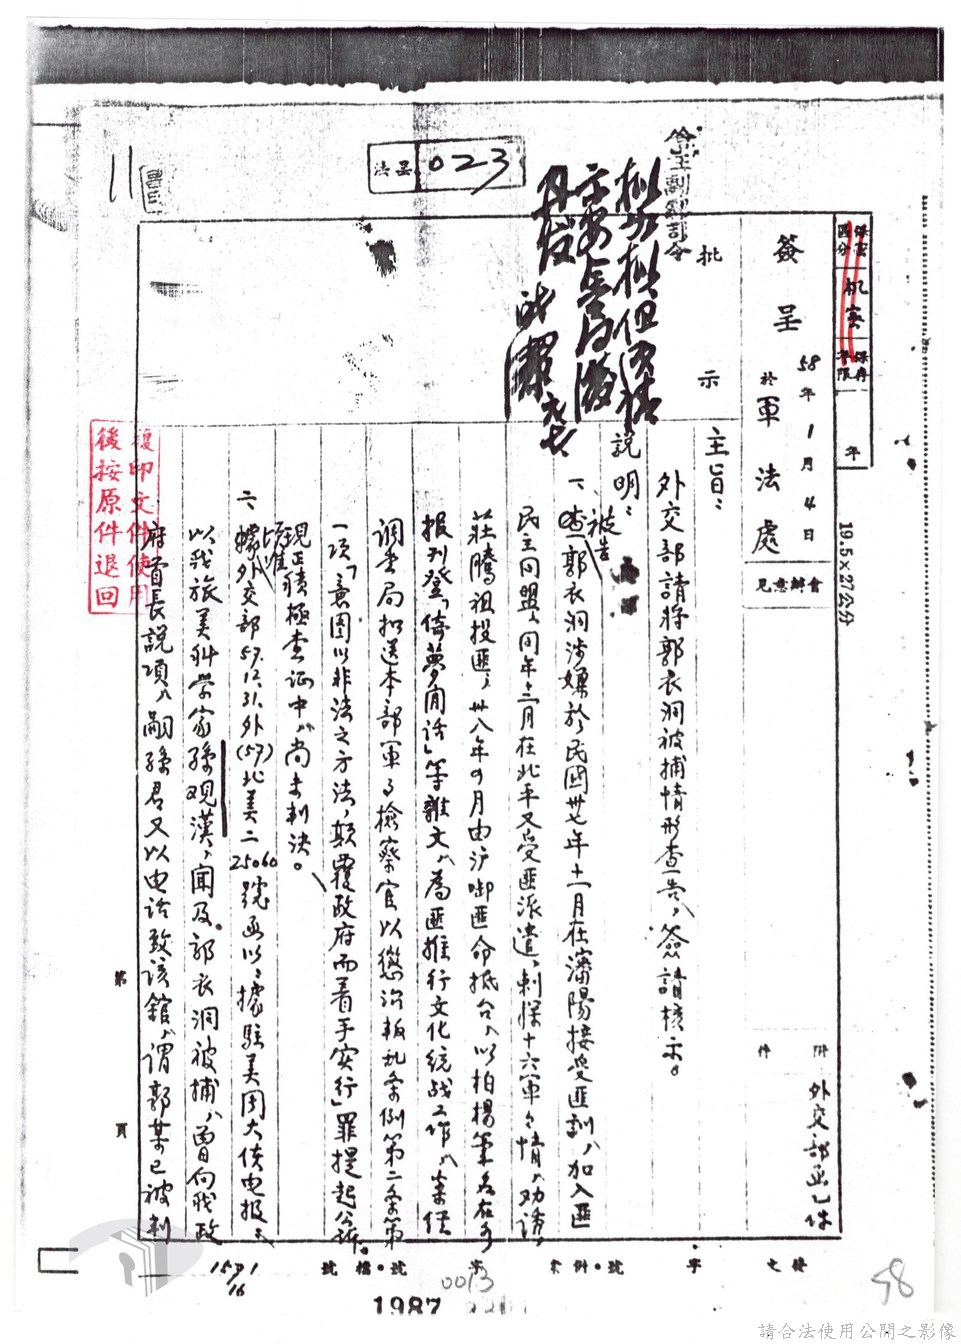 法呈 023
會王副總司令
批
示
簽
呈
58年1月4日
於軍法處
保密區分
机密
保存年限
年
會辦意見
19.5×27公分
附件
外交部函乙件
主旨：
外交部請將郭衣洞被捕情形查告，簽請核示。
說明：
一、被告郭衣洞涉嫌於民國卅七年十一月在瀋陽接受匪訓，加入匪
民主同盟，同年十二月在北平又受匪派遣，刺探十六軍軍情，勸誘
莊騰祖投匪，卅八年四月由沪啣匪命抵台，以柏楊筆名在各
报刊登「倚夢閒話」等雜文，為匪推行文化統战工作，案經
调查局扣送本部軍事檢察官以懲治叛乱条例第二条第
一項「意图以非法之方法，顛覆政府而着手实行」罪提起公訴。
現正積極查证中，尚未判决。
二、頃准外交部57.12.31.外(57)北美二25060號函以：據駐美周大使电报：
以我旅美科学家孫观漢，聞及郭衣洞被捕，曾向我政
府首長説項，嗣孫君又以电话致该館，謂郭某已被判
複印文件使用
後按原件退回
第
頁
發文
字
號
案例
字
號
檔號
0013
1987
58
請合法使用公開之影像